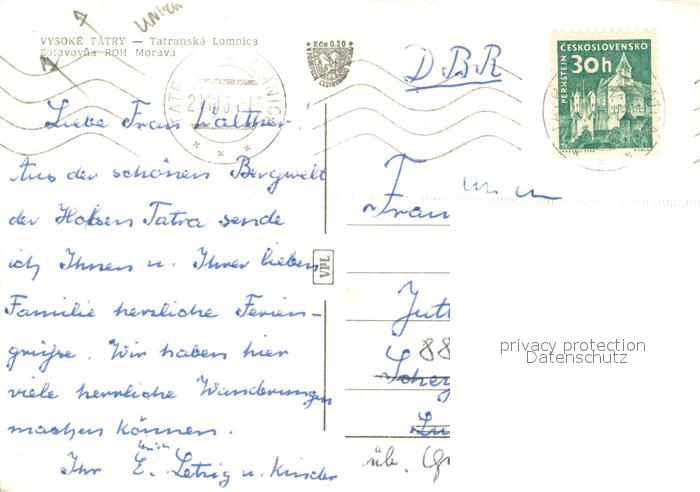 VYSOKÉ TATRY — Tatranská Lomnica
Zotavovňa ROH Morava
Kčs 0.20
ČESKOSLOVENSKO
30h
PERNŠTEJN
DBR
Liebe Frau Walther!
Aus der schönen Bergwelt
der Hohen Tatra sende
ich Ihnen u. Ihrer lieben
Familie herzliche Ferien-
grüße. Wir haben hier
viele herrliche Wanderungen
machen können.
Ihr E. Letzig u. Kinder
VPL
Frau
Jutt
88
Lu
üb. Gr
privacy protection
Datenschutz